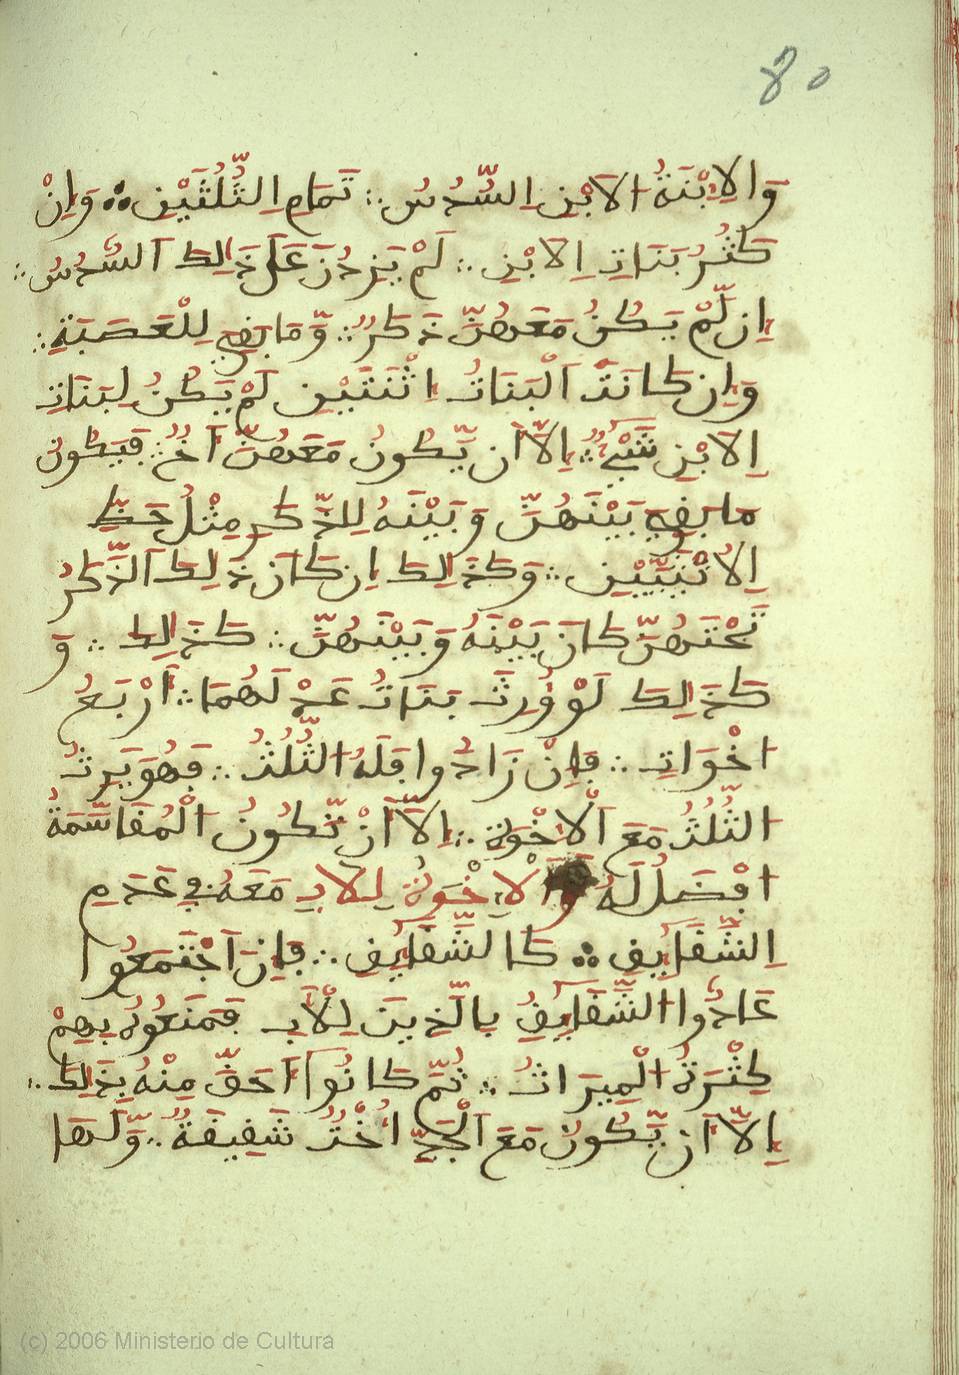 80
وَالِابْنَةُ الَابْنِ السُّدُسُ ∴ تَمَامِ الثُّلُثَيْنِ ∴ وَإِنْ
كَثُرَ بَنَاتِ الِابْنِ ∴ لَمْ يَزِدْنَ عَلَى ذَالِكَ السُّدُسُ ∴
إِن لَّمْ يَكُنُ مَعَهُنَّ ذَكَرٌ ∴ وَّمَا بَقِيَ لِلْعَصَبَةِ ∴
وَإِن كَانَتْ الْبَنَاتُ اثْنَتَيْنِ لَمْ يَكُنُ لِبَنَاتِ
الِابْنِ شَيْءٌ ∴ إِلَّا أَن يَّكُونُ مَعَهُنَّ أَخٌ ∴ فَيَكُونُ
مَا بَقِيَ بَيْنَهُنَّ وَبَيْنَهُ لِلذَّكَرِ مِثْلُ حَظِّ
الِانْثَيَيْنِ ∴ وَكَذَالِكَ إِن كَانَ ذَلِكَ الذَّكَرُ
تَحْتَهُنَّ كَانَ بَيْنَهُ وَبَيْنَهُنَّ ∴ كَذَالِكَ ∴ وَ
كَذَالِكَ لَوْ وُرِثَ بَنَاتُ عَدْلَهُمَا ∴ أَرْبَعُ
اخْوَاتِ ∴ فَإِنْ زَادُوا فَلَهُ الثُّلُثُ ∴ فَهُوَ يَرِثُ
الثُّلُثُ مَعَ الْاخْوَةِ ∴ إِلَّا أَنْ تَّكُونُ الْمُقَاسَمَةُ
افْضَلُ لَهُ وَالْاِخْوَةُ لِلَابِ مَعَهُ فِي عَدَمِ
الشَّقَايِقِ ∴ كَالشَّقَايِقِ ∴ فَإِنِ اجْتَمَعُوا
عَادُّوا الشَّقَايِقُ بِالَّذِينَ لِلْأَبِ فَمَنَعُوهُ بِهِمْ
كِثْرَةُ الْمِيرَاثُ ∴ ثُمَّ كَانُوا أَحَقَّ مِنْهُ بِذَالِكَ ∴
إِلَّا أَن يَّكُونُ مَعَ الْجَدِّ أُخْتٌ شَقِيقَةٌ ∴ وَّلَهَا
(c) 2006 Ministerio de Cultura